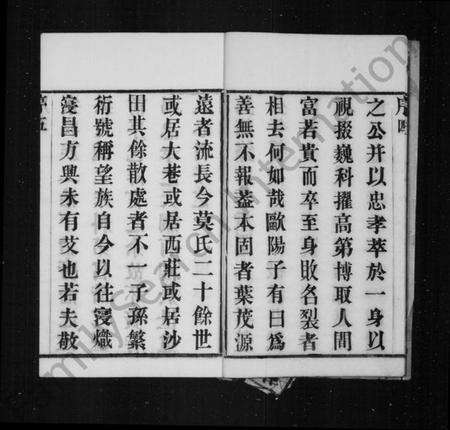 序四
之公并以忠孝萃於一身以
視掇巍科擢高第博取人間
富若貴而卒至身敗名裂者
相去何如哉歐陽子有曰為
善無不報蓋本固者葉茂源
遠者流長今莫氏二十餘世
或居大巷或居西莊或居沙
田其餘散處者不一子孫繁
衍號稱望族自今以往寖熾
寖昌方興未有艾也若夫敬
序五
FamilySearch International